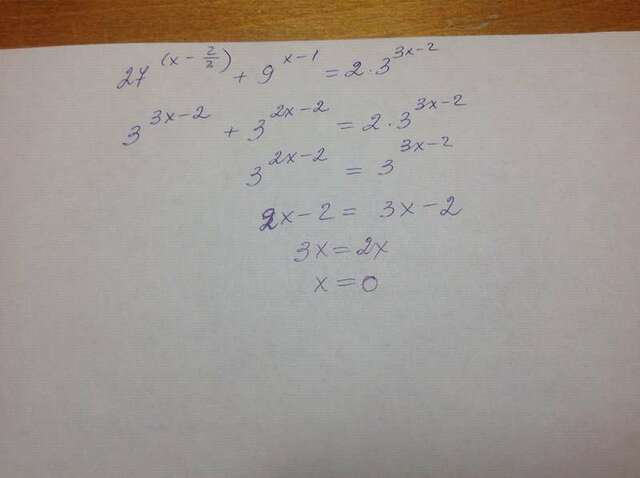 27^(x - 2/3) + 9^(x-1) = 2 · 3^(3x-2)
3^(3x-2) + 3^(2x-2) = 2 · 3^(3x-2)
3^(2x-2) = 3^(3x-2)
2x - 2 = 3x - 2
3x = 2x
x = 0